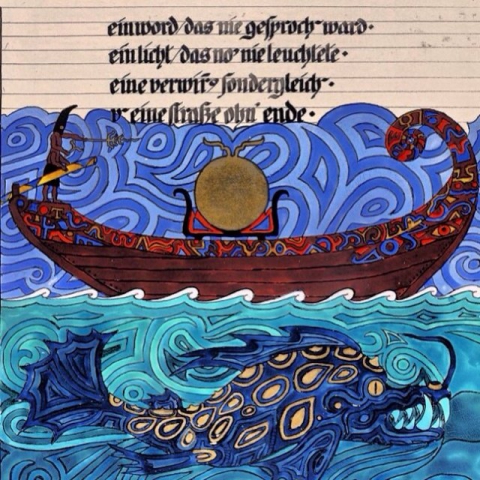 ein word/das nie gesproch‾ ward·
ein licht/das no' nie leuchtete·
eine verwirrg sondergleich‾·
v eine straße ohn' ende·